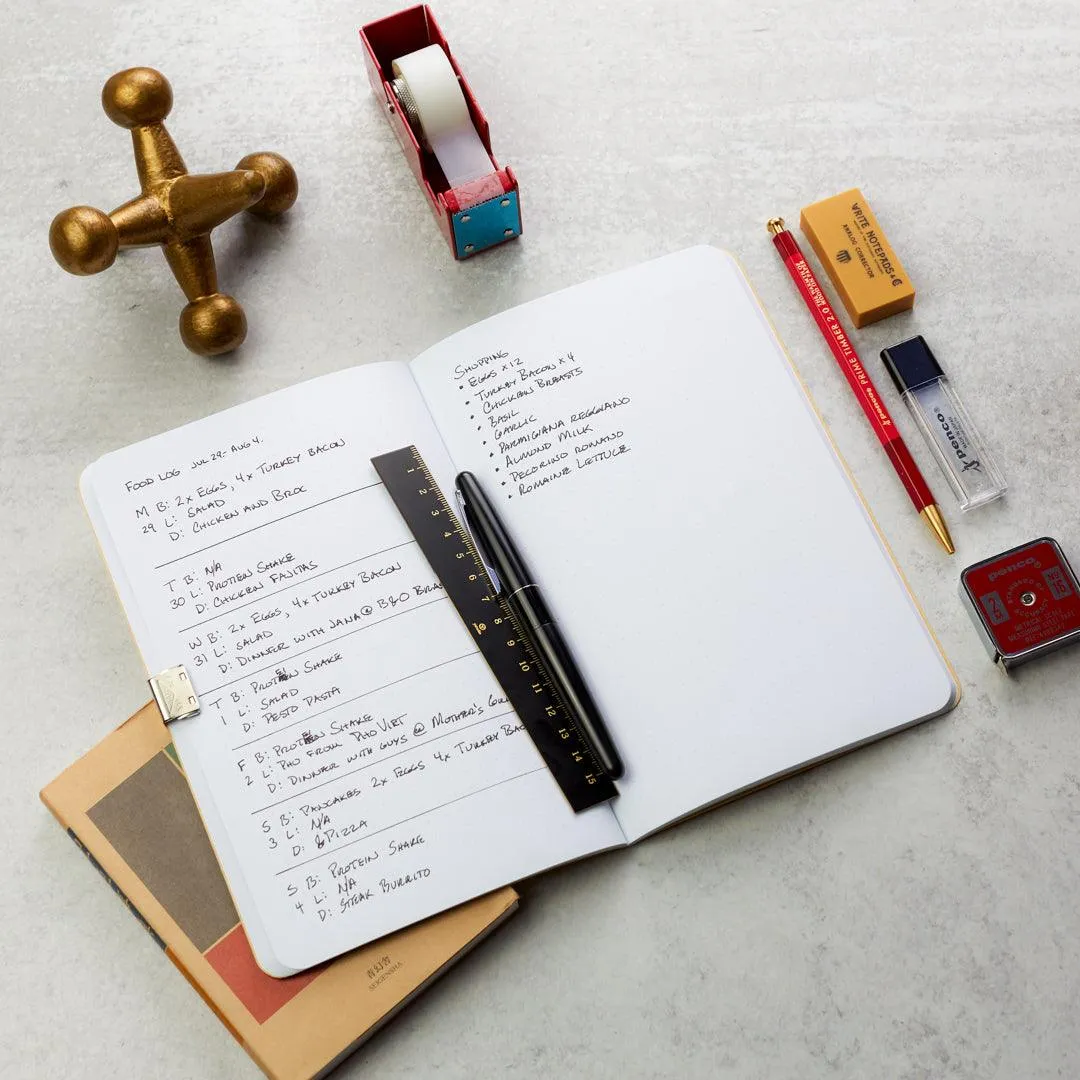 FOOD LOG JUL 29- AUG 4.
M B: 2x EGGS, 4x TURKEY BACON
29 L: SALAD
D: CHICKEN AND BROC
T B: N/A
30 L: PROTIEN SHAKE
D: CHICKEN FAJITAS
W B: 2x EGGS, 4x TURKEY BACON
31 L: SALAD
D: DINNER WITH JANA @ B&O
T B: PROTEIN SHAKE
1 L: SALAD
D: PESTO PASTA
F B: PROTEIN SHAKE
2 L: PHO FROM PHO VIET
D: DINNER WITH GUYS @ MOTHER'S
S B: PANCAKES 2x EGGS 4x TURKEY
3 L: N/A
D: PIZZA
S B: PROTEIN SHAKE
4 L: N/A
D: STEAK BURRITO
SHOPPING
• EGGS x12
• TURKEY BACON x 4
• CHICKEN BREASTS
• BASIL
• GARLIC
• PARMIGIANA REGGIANO
• ALMOND MILK
• PECORINO ROMANO
• ROMAINE LETTUCE
1 2 3 4 5 6 7 8 9 10 11 12 13 14 15
WRITE NOTEPADS & C
ANALOG CORRECTOR
penco PRIME TIMBER 2.0
penco
penco
2m
青幻舎
SEIGENSHA